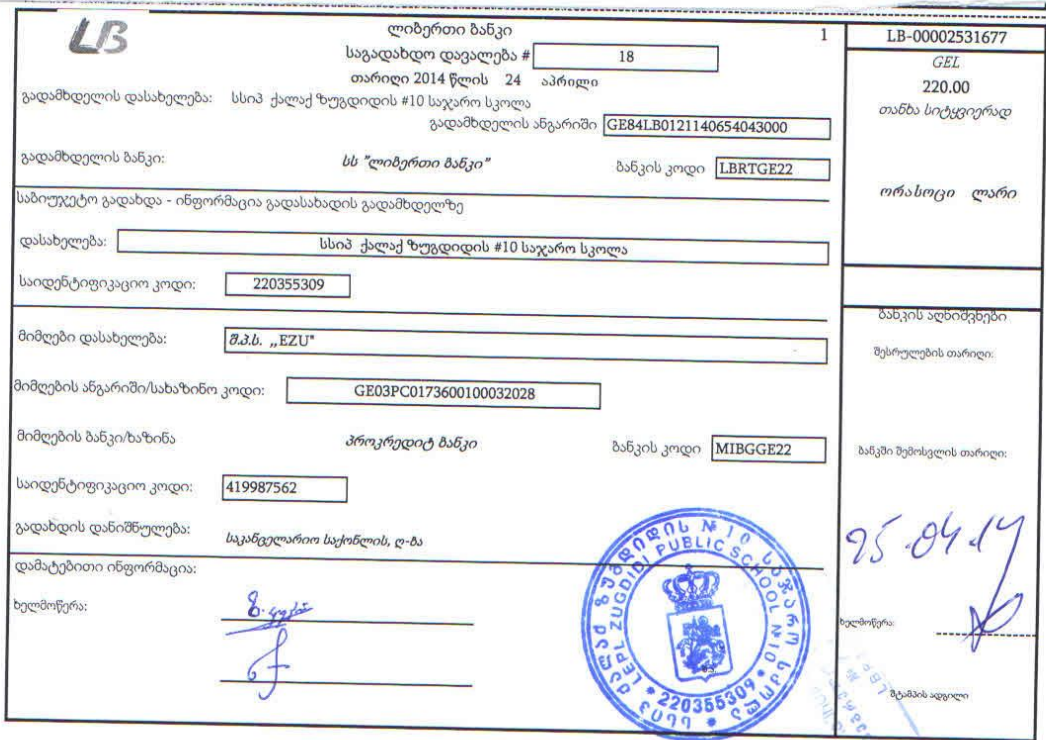 LB
ლიბერთი ბანკი 1
საგადახდო დავალება # 18
თარიღი 2014 წლის 24 აპრილი
გადამხდელის დასახელება: სსიპ ქალაქ ზუგდიდის #10 საჯარო სკოლა
გადამხდელის ანგარიში GE84LB0121140654043000
გადამხდელის ბანკი: სს "ლიბერთი ბანკი" ბანკის კოდი LBRTGE22
საბიუჯეტო გადახდა - ინფორმაცია გადასახადის გადამხდელზე
დასახელება: სსიპ ქალაქ ზუგდიდის #10 საჯარო სკოლა
საიდენტიფიკაციო კოდი: 220355309
მიმღები დასახელება: შ.პ.ს. „EZU"
მიმღების ანგარიში/სახაზინო კოდი: GE03PC0173600100032028
მიმღების ბანკი/ხაზინა პროკრედიტ ბანკი ბანკის კოდი MIBGGE22
საიდენტიფიკაციო კოდი: 419987562
გადახდის დანიშნულება: საკანცელარიო საქონლის, ღ-ბა
დამატებითი ინფორმაცია:
ხელმოწერა:
სსიპ ქალაქ ზუგდიდის №10 საჯარო სკოლა
LEPL ZUGDIDI PUBLIC SCHOOL №10
* 220355309 *
LB-00002531677
GEL
220.00
თანხა სიტყვიერად
ორასოცი ლარი
ბანკის აღნიშვნები
შესრულების თარიღი:
ბანკში შემოსვლის თარიღი:
25.04.14
ხელმოწერა:
შტამპის ადგილი